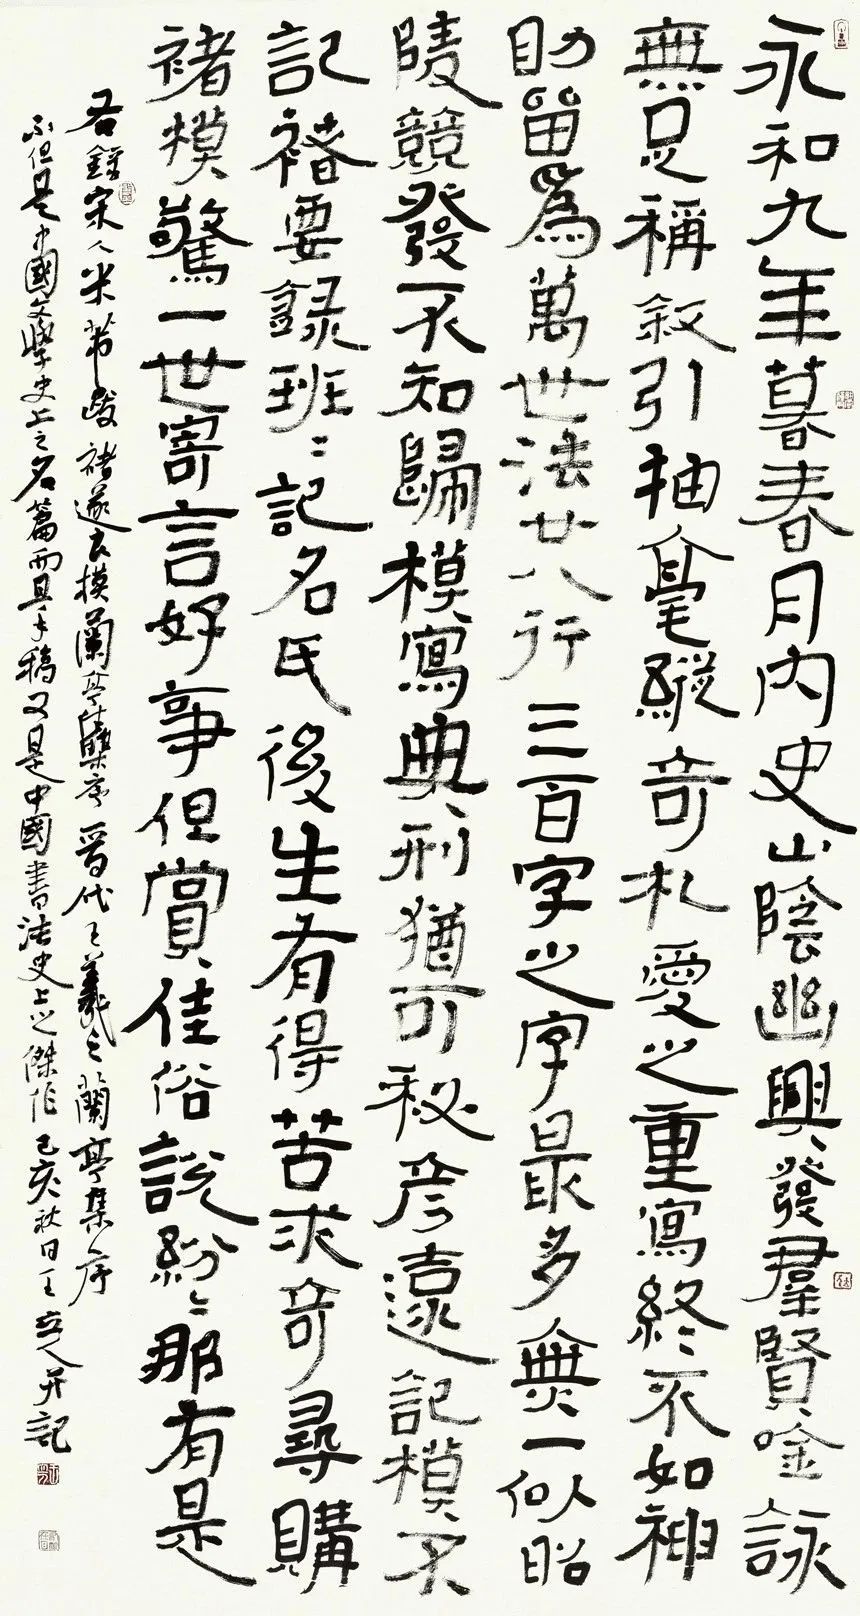 永和九年暮春月内史山陰幽興發群賢唫詠
無足稱叙引抽毫縱奇札愛之重寫終不如神
助留為萬世法廿八行三百字之字最多無一似昭
陵競發不知歸模寫典刑猶可秘彦遠記模不
記褚要録班〻記名氏後生有得苦求奇尋購
褚模驚一世寄言好事但賞佳俗說紛〻那有是
右錄宋人米芾跋褚遂良摸蘭亭集序晉代王羲之蘭亭集序
不但是中國文學史上之名篇而且手稿又是中國書法史上之傑作己亥秋日王立人并記